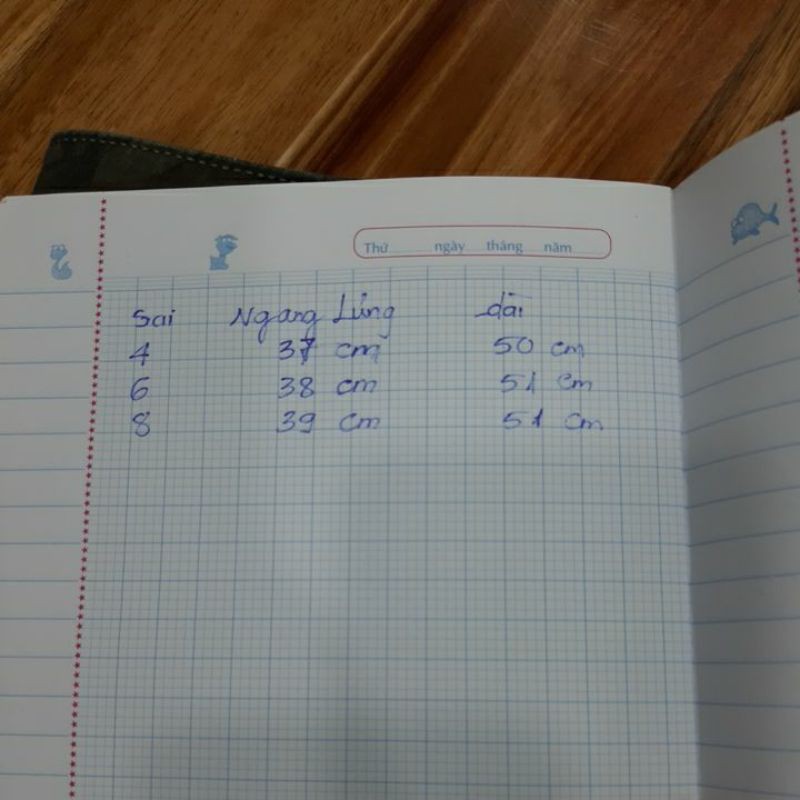 Thứ ngày tháng năm
Sai Ngang Lưng dài
4 37 cm 50 cm
6 38 cm 51 cm
8 39 cm 51 cm